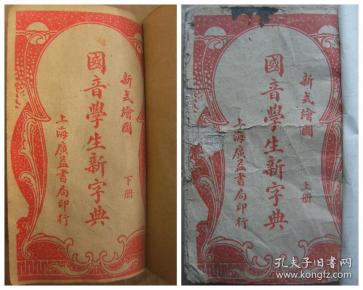 新式繪圖
下册
國音學生新字典
上海廣益書局印行
新式繪圖
上册
國音學生新字典
上海廣益書局印行
孔夫子旧书网
www.kongfz.com